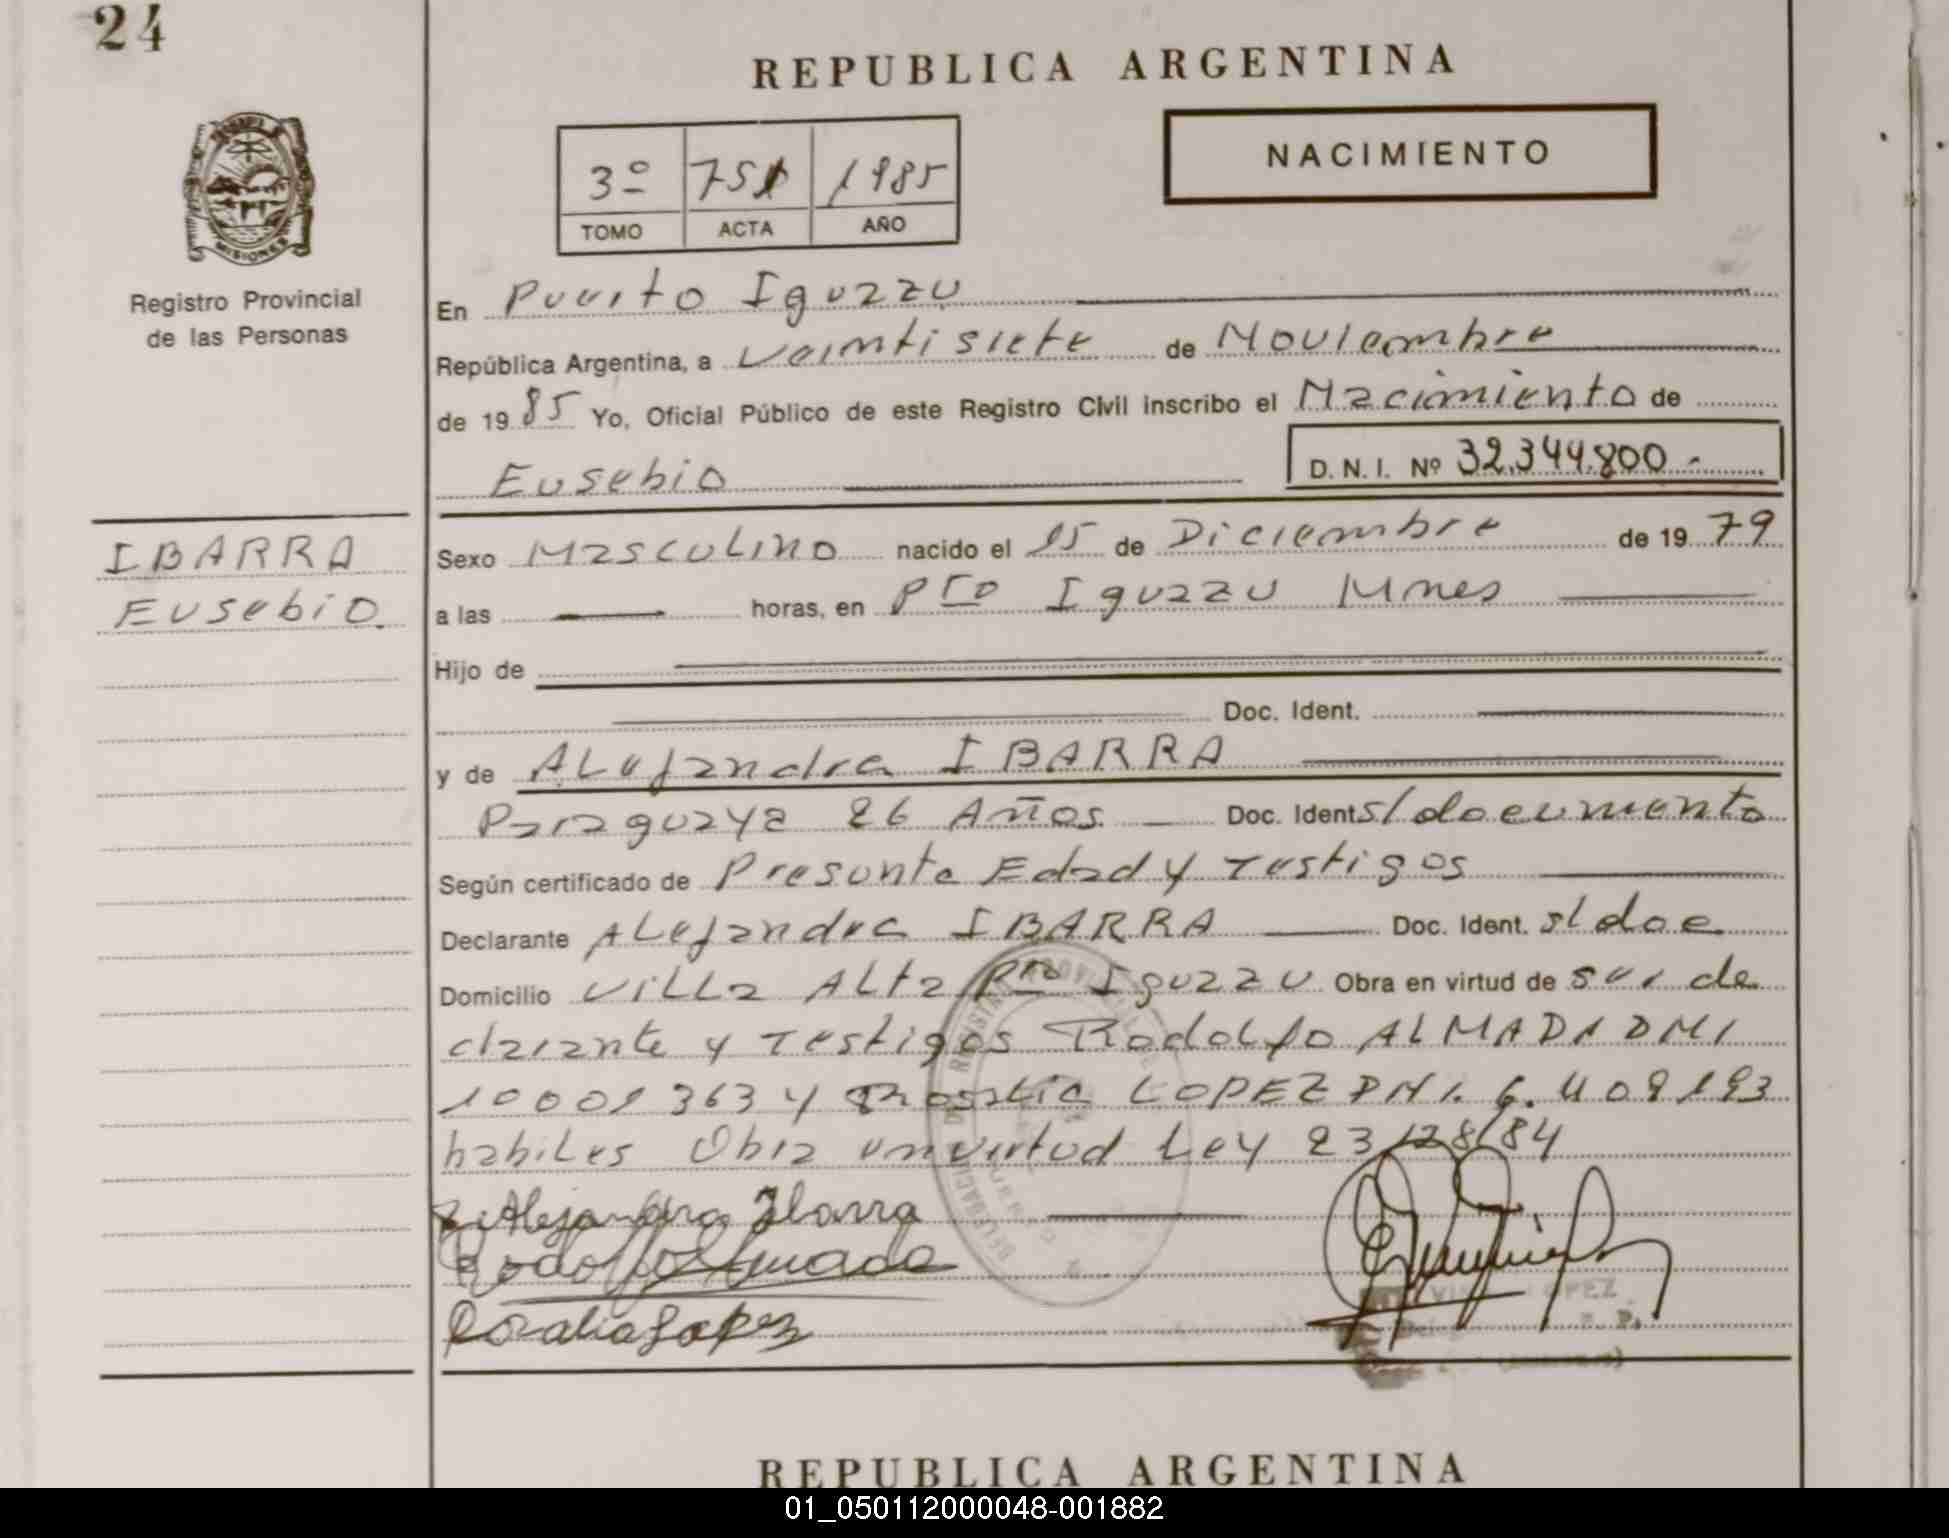 24
REPUBLICA ARGENTINA
NACIMIENTO
3º 751 1985
TOMO ACTA AÑO
MISIONES
Registro Provincial
de las Personas
En Puerto Iguazu
República Argentina, a Veintisiete de Noviembre
de 1985 Yo, Oficial Público de este Registro Civil inscribo el Nacimiento de
Eusebio D. N. I. Nº 32.344.800.-
IBARRA
Eusebio.
Sexo Masculino nacido el 15 de Diciembre de 1979
a las horas, en Pto Iguazu Mnes
Hijo de
Doc. Ident.
y de Alejandra IBARRA
Paraguaya 26 Años Doc. Ident s/documento
Según certificado de Presunta Edad y Testigos
Declarante Alejandra IBARRA Doc. Ident. s/doc
Domicilio Villa Alta Pto Iguazu Obra en virtud de ser de
clarante y Testigos Rodolfo ALMADA DNI
10001363 y Rosalia LOPEZ DNI. 6.409.193
habiles Obra en virtud Ley 23128/84
Alejandra Ibarra
Rodolfo Almada
Rosalia Lopez
LOPEZ
REPUBLICA ARGENTINA
01_050112000048-001882